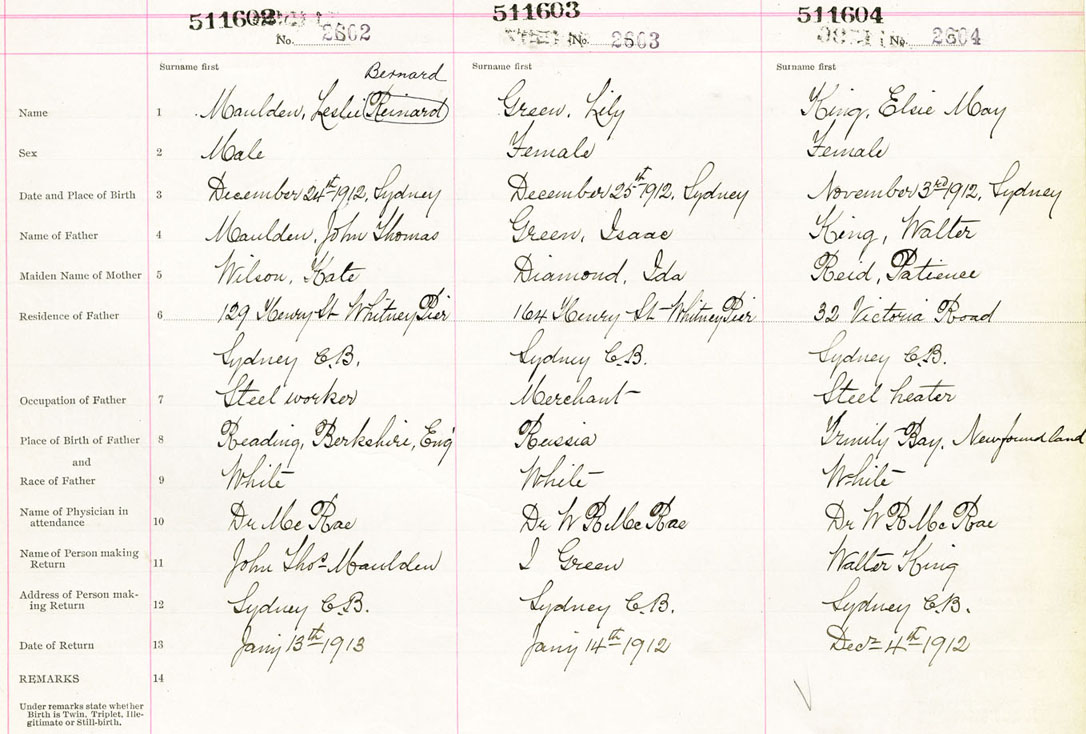 511602 511603 511604
No. 2602 No. 2603 No. 2604
Surname first Surname first Surname first
Bernard
Name 1 Maulden, Leslie Reinard Green, Lily King, Elsie May
Sex 2 Male Female Female
Date and Place of Birth 3 December 24th 1912, Sydney December 25th 1912, Sydney November 3rd 1912, Sydney
Name of Father 4 Maulden, John Thomas Green, Isaac King, Walter
Maiden Name of Mother 5 Wilson, Kate Diamond, Ida Reid, Patience
Residence of Father 6 129 Henry St Whitney Pier 164 Henry St Whitney Pier 32 Victoria Road
Sydney C.B. Sydney C.B. Sydney C.B.
Occupation of Father 7 Steel worker Merchant Steel heater
Place of Birth of Father 8 Reading, Berkshire, Eng Russia Trinity Bay, Newfoundland
and
Race of Father 9 White White White
Name of Physician in
attendance 10 Dr Mc Rae Dr W R Mc Rae Dr W R Mc Rae
Name of Person making
Return 11 John Thos Maulden I Green Walter King
Address of Person mak-
ing Return 12 Sydney C.B. Sydney C.B. Sydney C.B.
Date of Return 13 Jany 13th 1913 Jany 14th 1912 Decr 4th 1912
REMARKS 14
Under remarks state whether
Birth is Twin, Triplet, Ille-
gitimate or Still-birth.